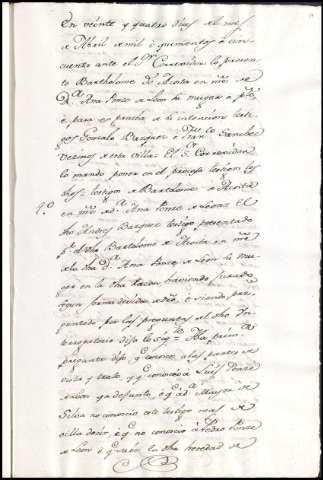 En veinte y quatro dias del mes
de Abril de mil e quinientos e cin
cuenta ante el Sr. Corregidor lo presentó
Bartholome de Acosta en nre. de
Da. Ana Ponze de Leon su muger
e para en prueba de la intencion testi
gos Gonzalo Bazquez e Franco. Sanchez
Vezinos de esta villa. El Sr. Corregidor
lo mandó poner en el proceso testigos los
dhos. testigo Bartholome de Acosta
en nre. de Da. Ana Ponze de Leon: El
dho. Andres Bazquez testigo presentado
pr. el dho. Bartolome de Acosta en nre.
de la dha. Da. Ana Ponze de Leon su mu
ger en la dha. razon haviendo jurado
segun forma devida de dro. e siendo pre
guntado por las preguntas del dho. In
terrogatorio dijo lo sigte. = A la primera
pregunta dijo q conoce a las partes de
vista y trato, y q conocio a Luis Ponze
de Leon ya defunto, e q a Da. Mayor de
Silva no conocio este testigo mas de
oilla decir, e q no conocio a Pedro Ponze
de Leon e q save la dha. heredad de